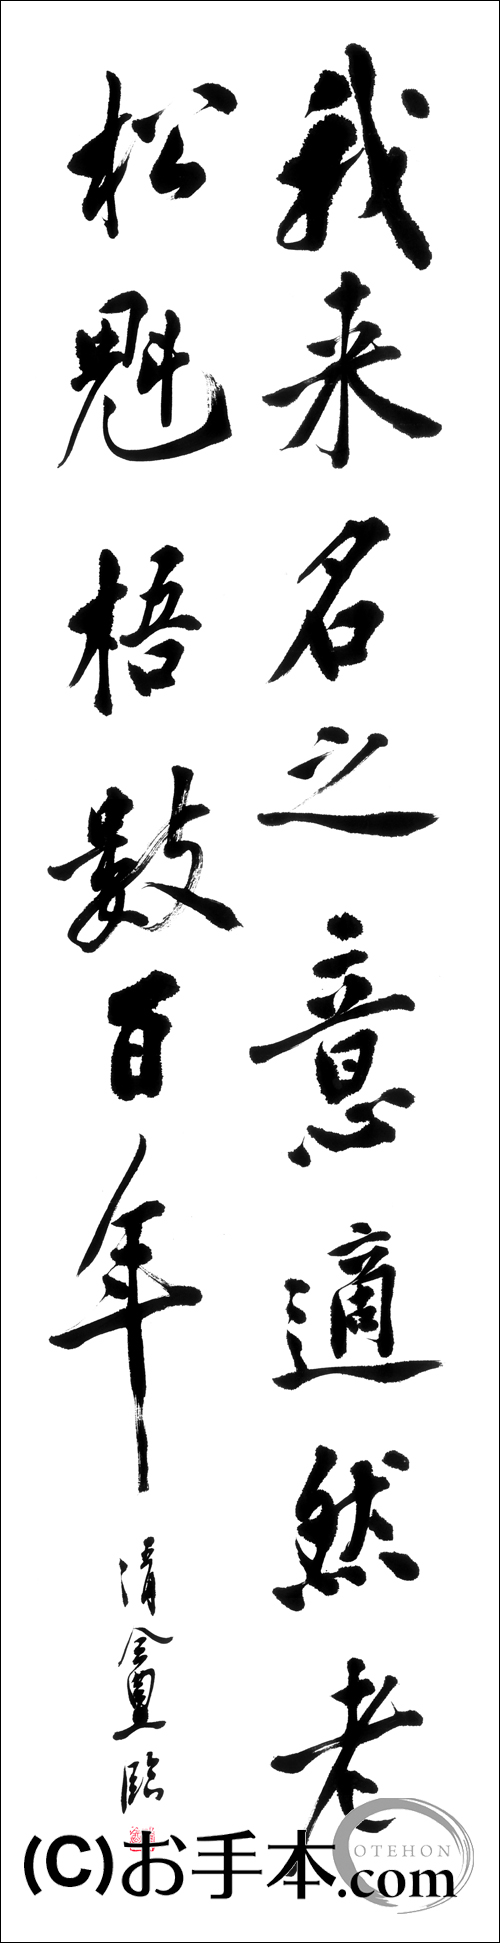 我来名之意適然老
松魁梧数百年
清龕臨
OTEHON
(C)お手本.com